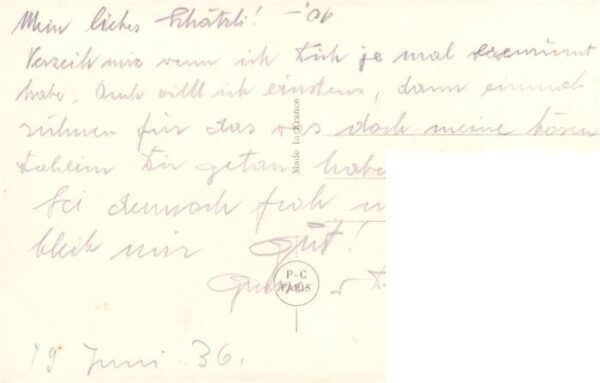 Mein liebes Schätzli!
Verzeih mir wenn ich Dich je mal
habe. Auch will ich einstens, dann einmal
sühnen für das was doch meine bösen
Daheim Dir getan habe
Sei dennoch froh
bleib mir Gut!
19 Juni 36.
Made in France
P-C
PARIS